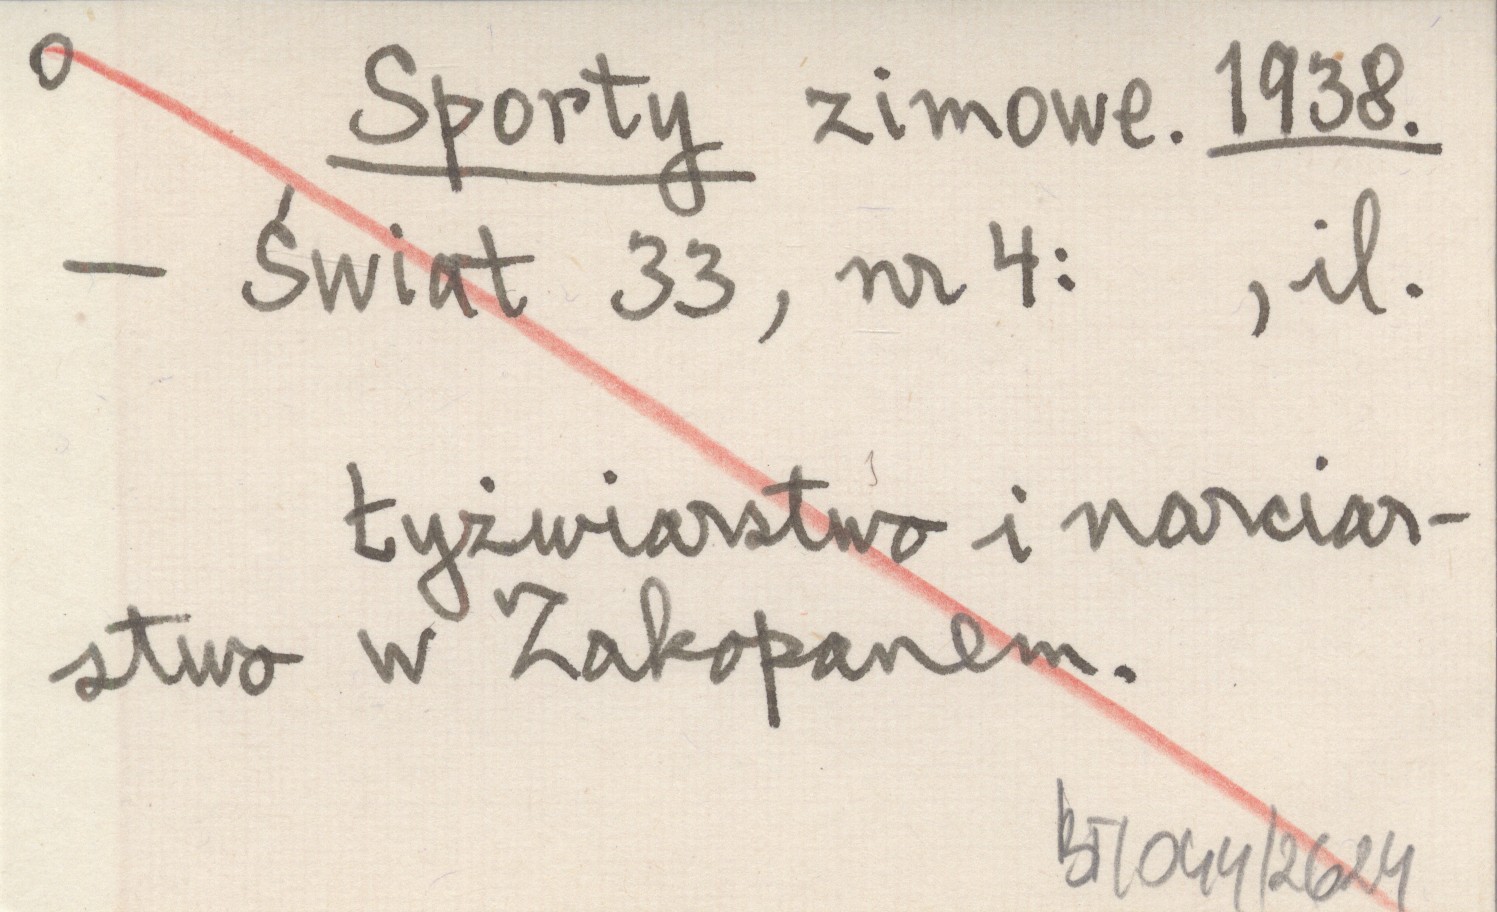 o Sporty zimowe. 1938.
— Świat 33, nr 4: , il.
Łyżwiarstwo i narciar-
stwo w Zakopanem.
BT/044/2624